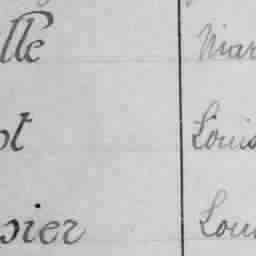 lle Mar
ot Louis
sier Lou